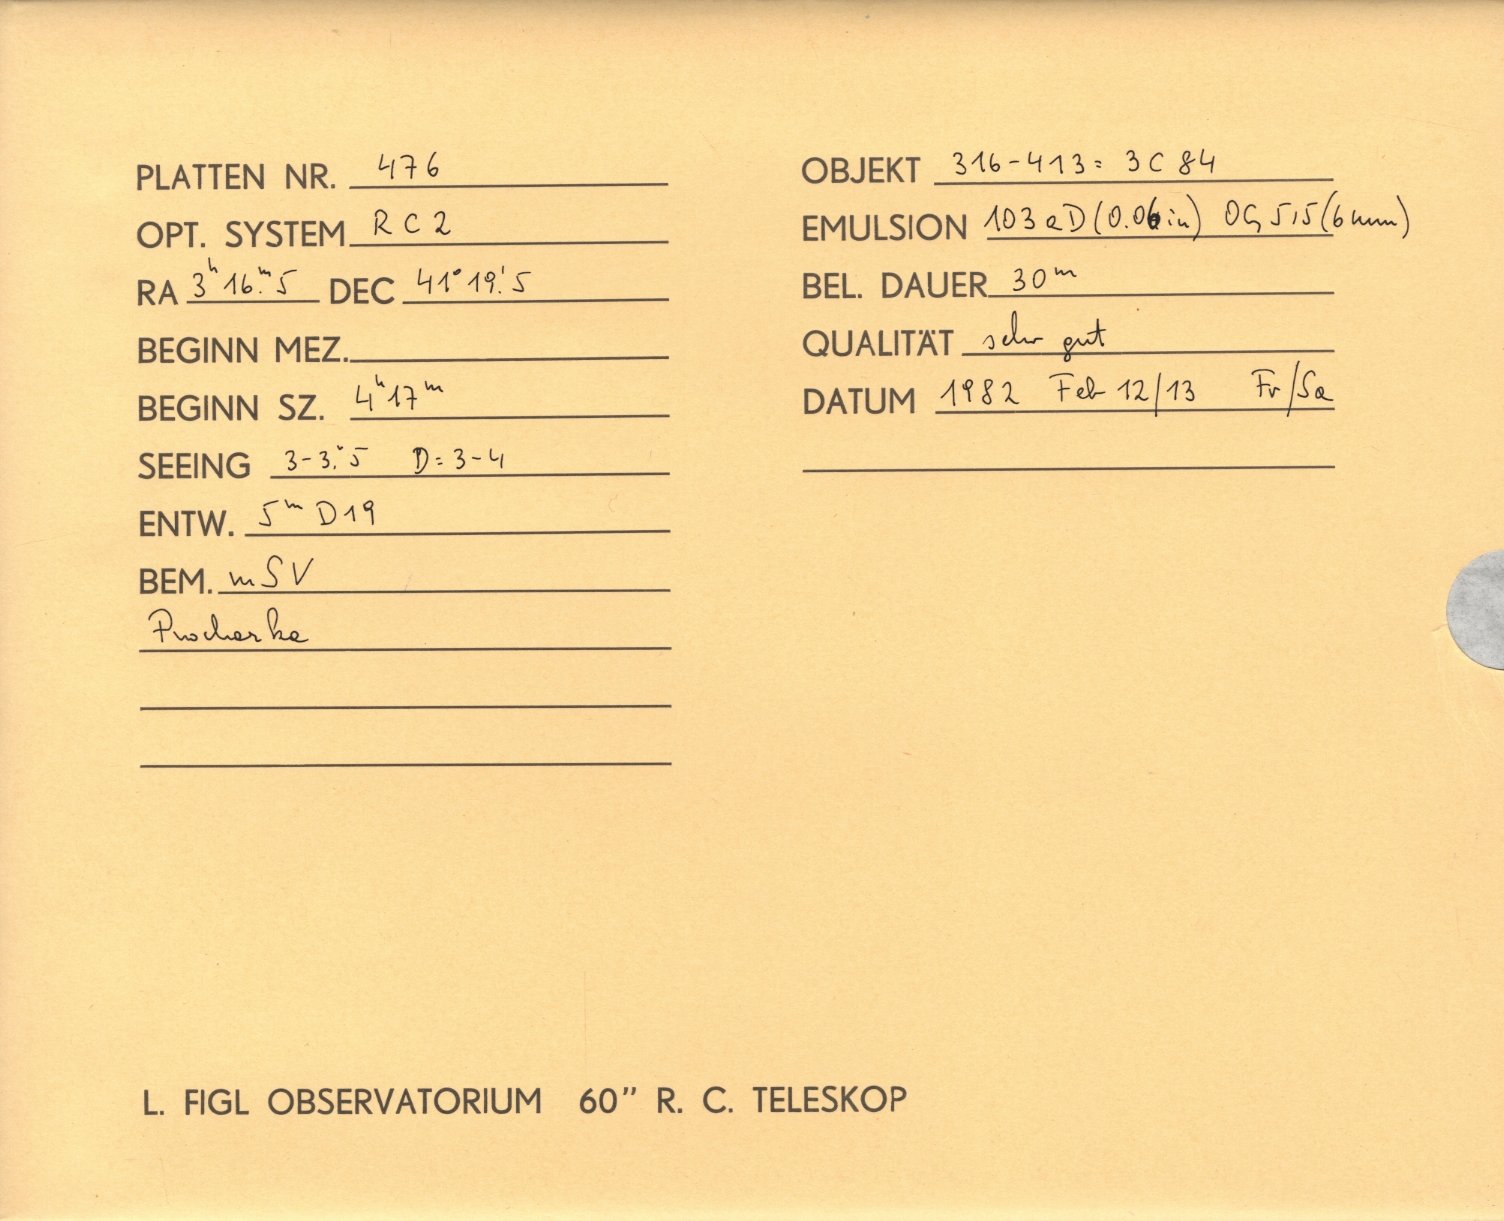 PLATTEN NR. 476
OPT. SYSTEM RC2
RA 3ʰ16ᵐ.5 DEC 41°19'.5
BEGINN MEZ.
BEGINN SZ. 4ʰ17ᵐ
SEEING 3-3".5 D=3-4
ENTW. 5ᵐ D19
BEM. mSV
Prochazka
OBJEKT 316-413= 3C 84
EMULSION 103aD(0.06in) OG515(6mm)
BEL. DAUER 30ᵐ
QUALITÄT sehr gut
DATUM 1982 Feb 12/13 Fr/Sa
L. FIGL OBSERVATORIUM 60” R. C. TELESKOP